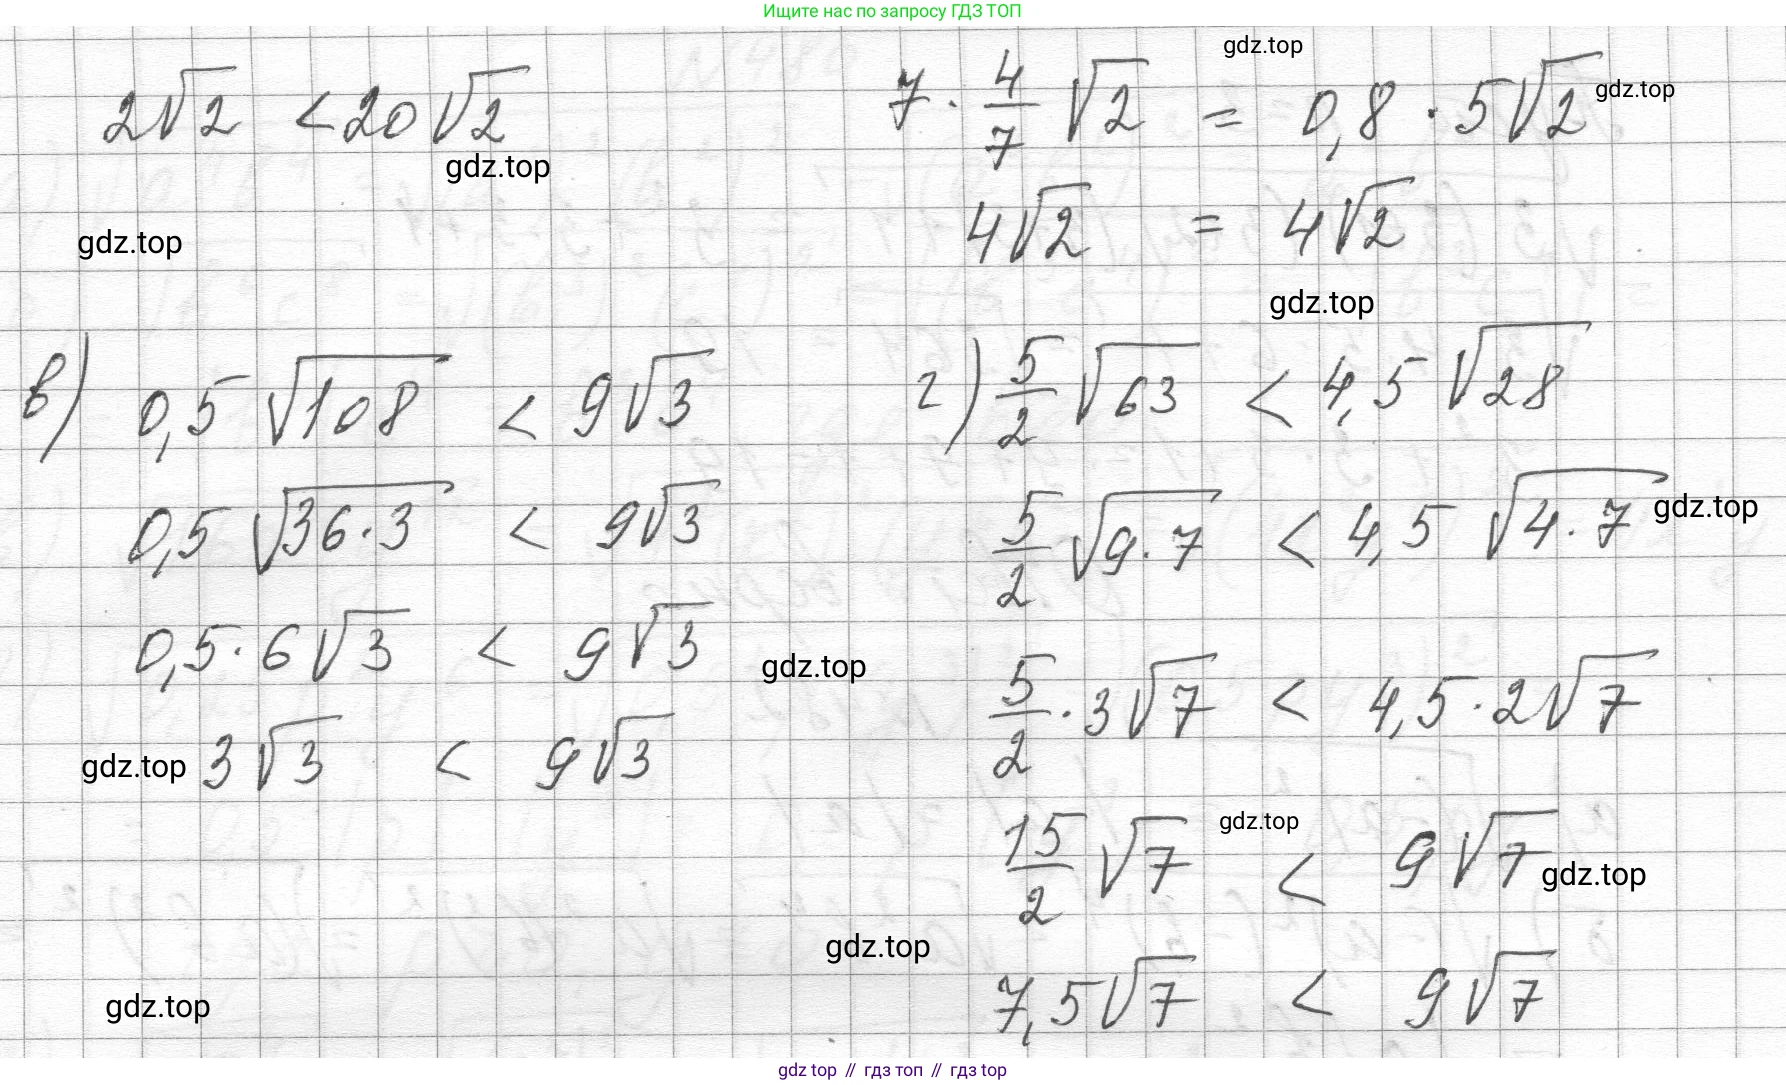 Ищите нас по запросу ГДЗ ТОП
2√2 < 20√2
gdz.top
gdz.top
gdz.top
7 · 4/7 √2 = 0,8 · 5√2
gdz.top
4√2 = 4√2
gdz.top
в) 0,5 √108 < 9√3
0,5 √36·3 < 9√3
0,5 · 6√3 < 9√3
gdz.top
gdz.top
3√3 < 9√3
г) 5/2 √63 < 4,5 √28
5/2 √9·7 < 4,5 √4·7
gdz.top
5/2 · 3√7 < 4,5 · 2√7
gdz.top
15/2 √7 < 9√7
gdz.top
gdz.top
7,5√7 < 9√7
gdz.top
gdz top // гдз топ // гдз top